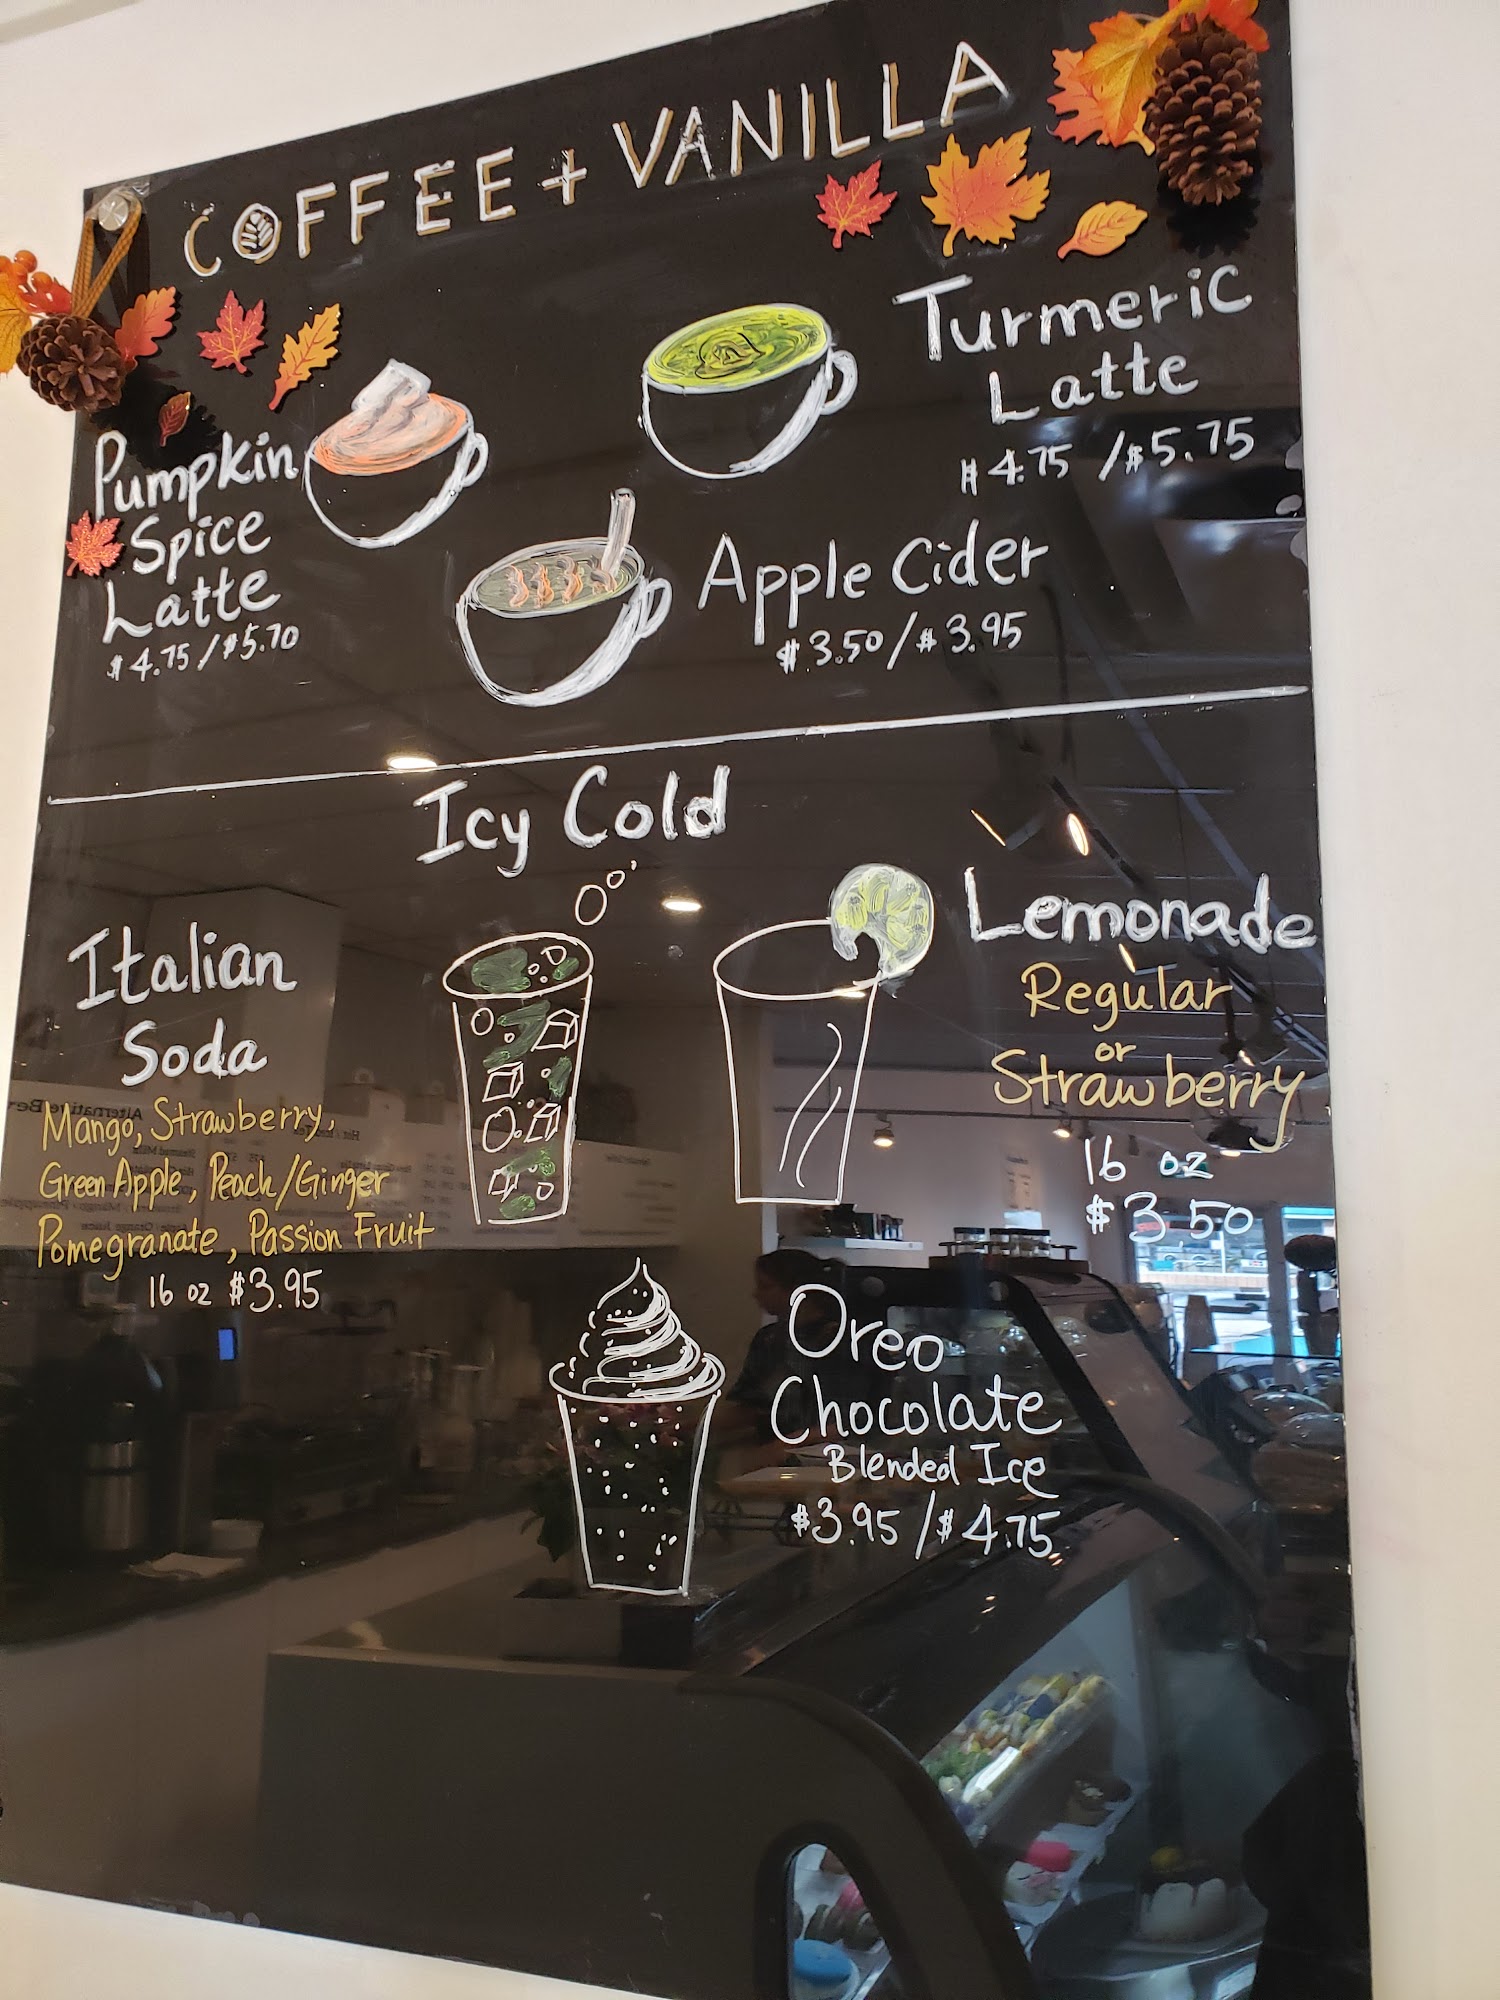 COFFEE + VANILLA
Pumpkin
Spice
Latte
$4.75/$5.70
Turmeric
Latte
$4.75/$5.75
Apple Cider
$3.50/$3.95
Icy Cold
Italian
Soda
Mango, Strawberry,
Green Apple, Peach/Ginger
Pomegranate, Passion Fruit
16 oz $3.95
Lemonade
Regular
or
Strawberry
16 oz
$3 50
Oreo
Chocolate
Blended Ice
$3.95/$4.75